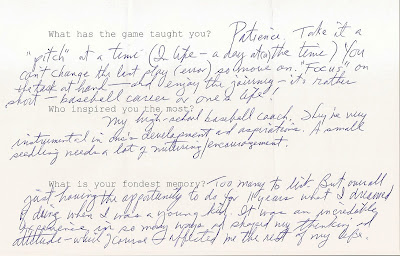 What has the game taught you? Patience. Take it a
"pitch" at a time (In life – a day at a time) You
can't change the last play (error) so move on. "Focus" on
the task at hand – and enjoy the journey – it's rather
short – baseball career or one's life!
Who inspired you the most?
My high-school baseball coach. They're very
instrumental in one's development and aspirations. A small
seedling needs a lot of nurturing/encouragement.
What is your fondest memory? Too many to list. But, overall
just having the opportunity to do for 11 years what I dreamed
of doing when I was a young kid. It was an incredible
experience in so many ways and shaped my thinking and
attitude – which of course affected me the rest of my life.